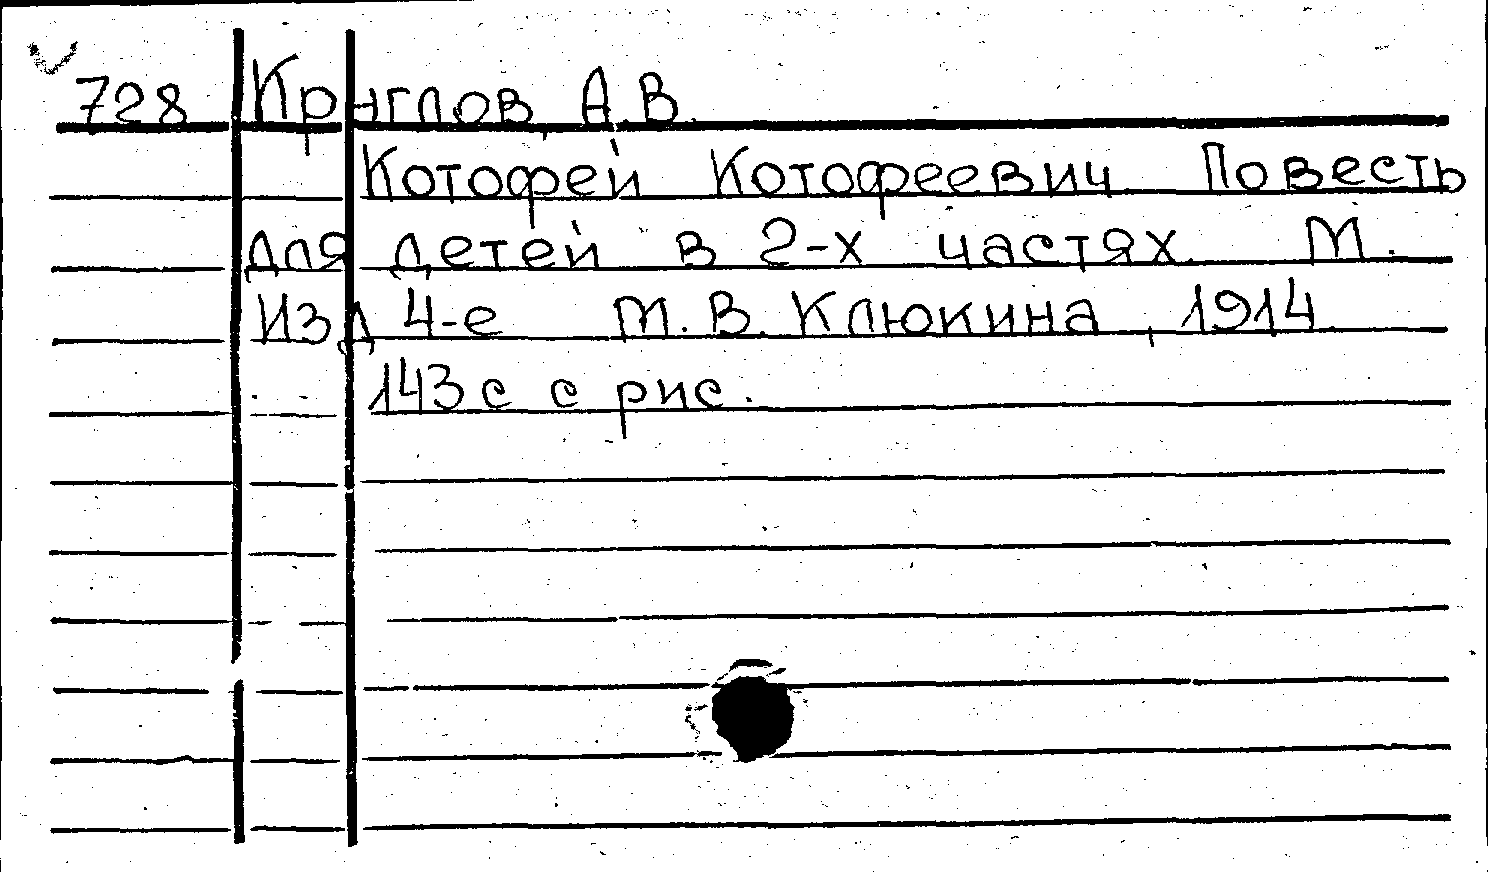 728 Круглов А.В.
Котофей Котофеевич Повесть
для детей в 2-х частях. М.
Изд 4-е М.В. Клюкина, 1914
143 с с рис.